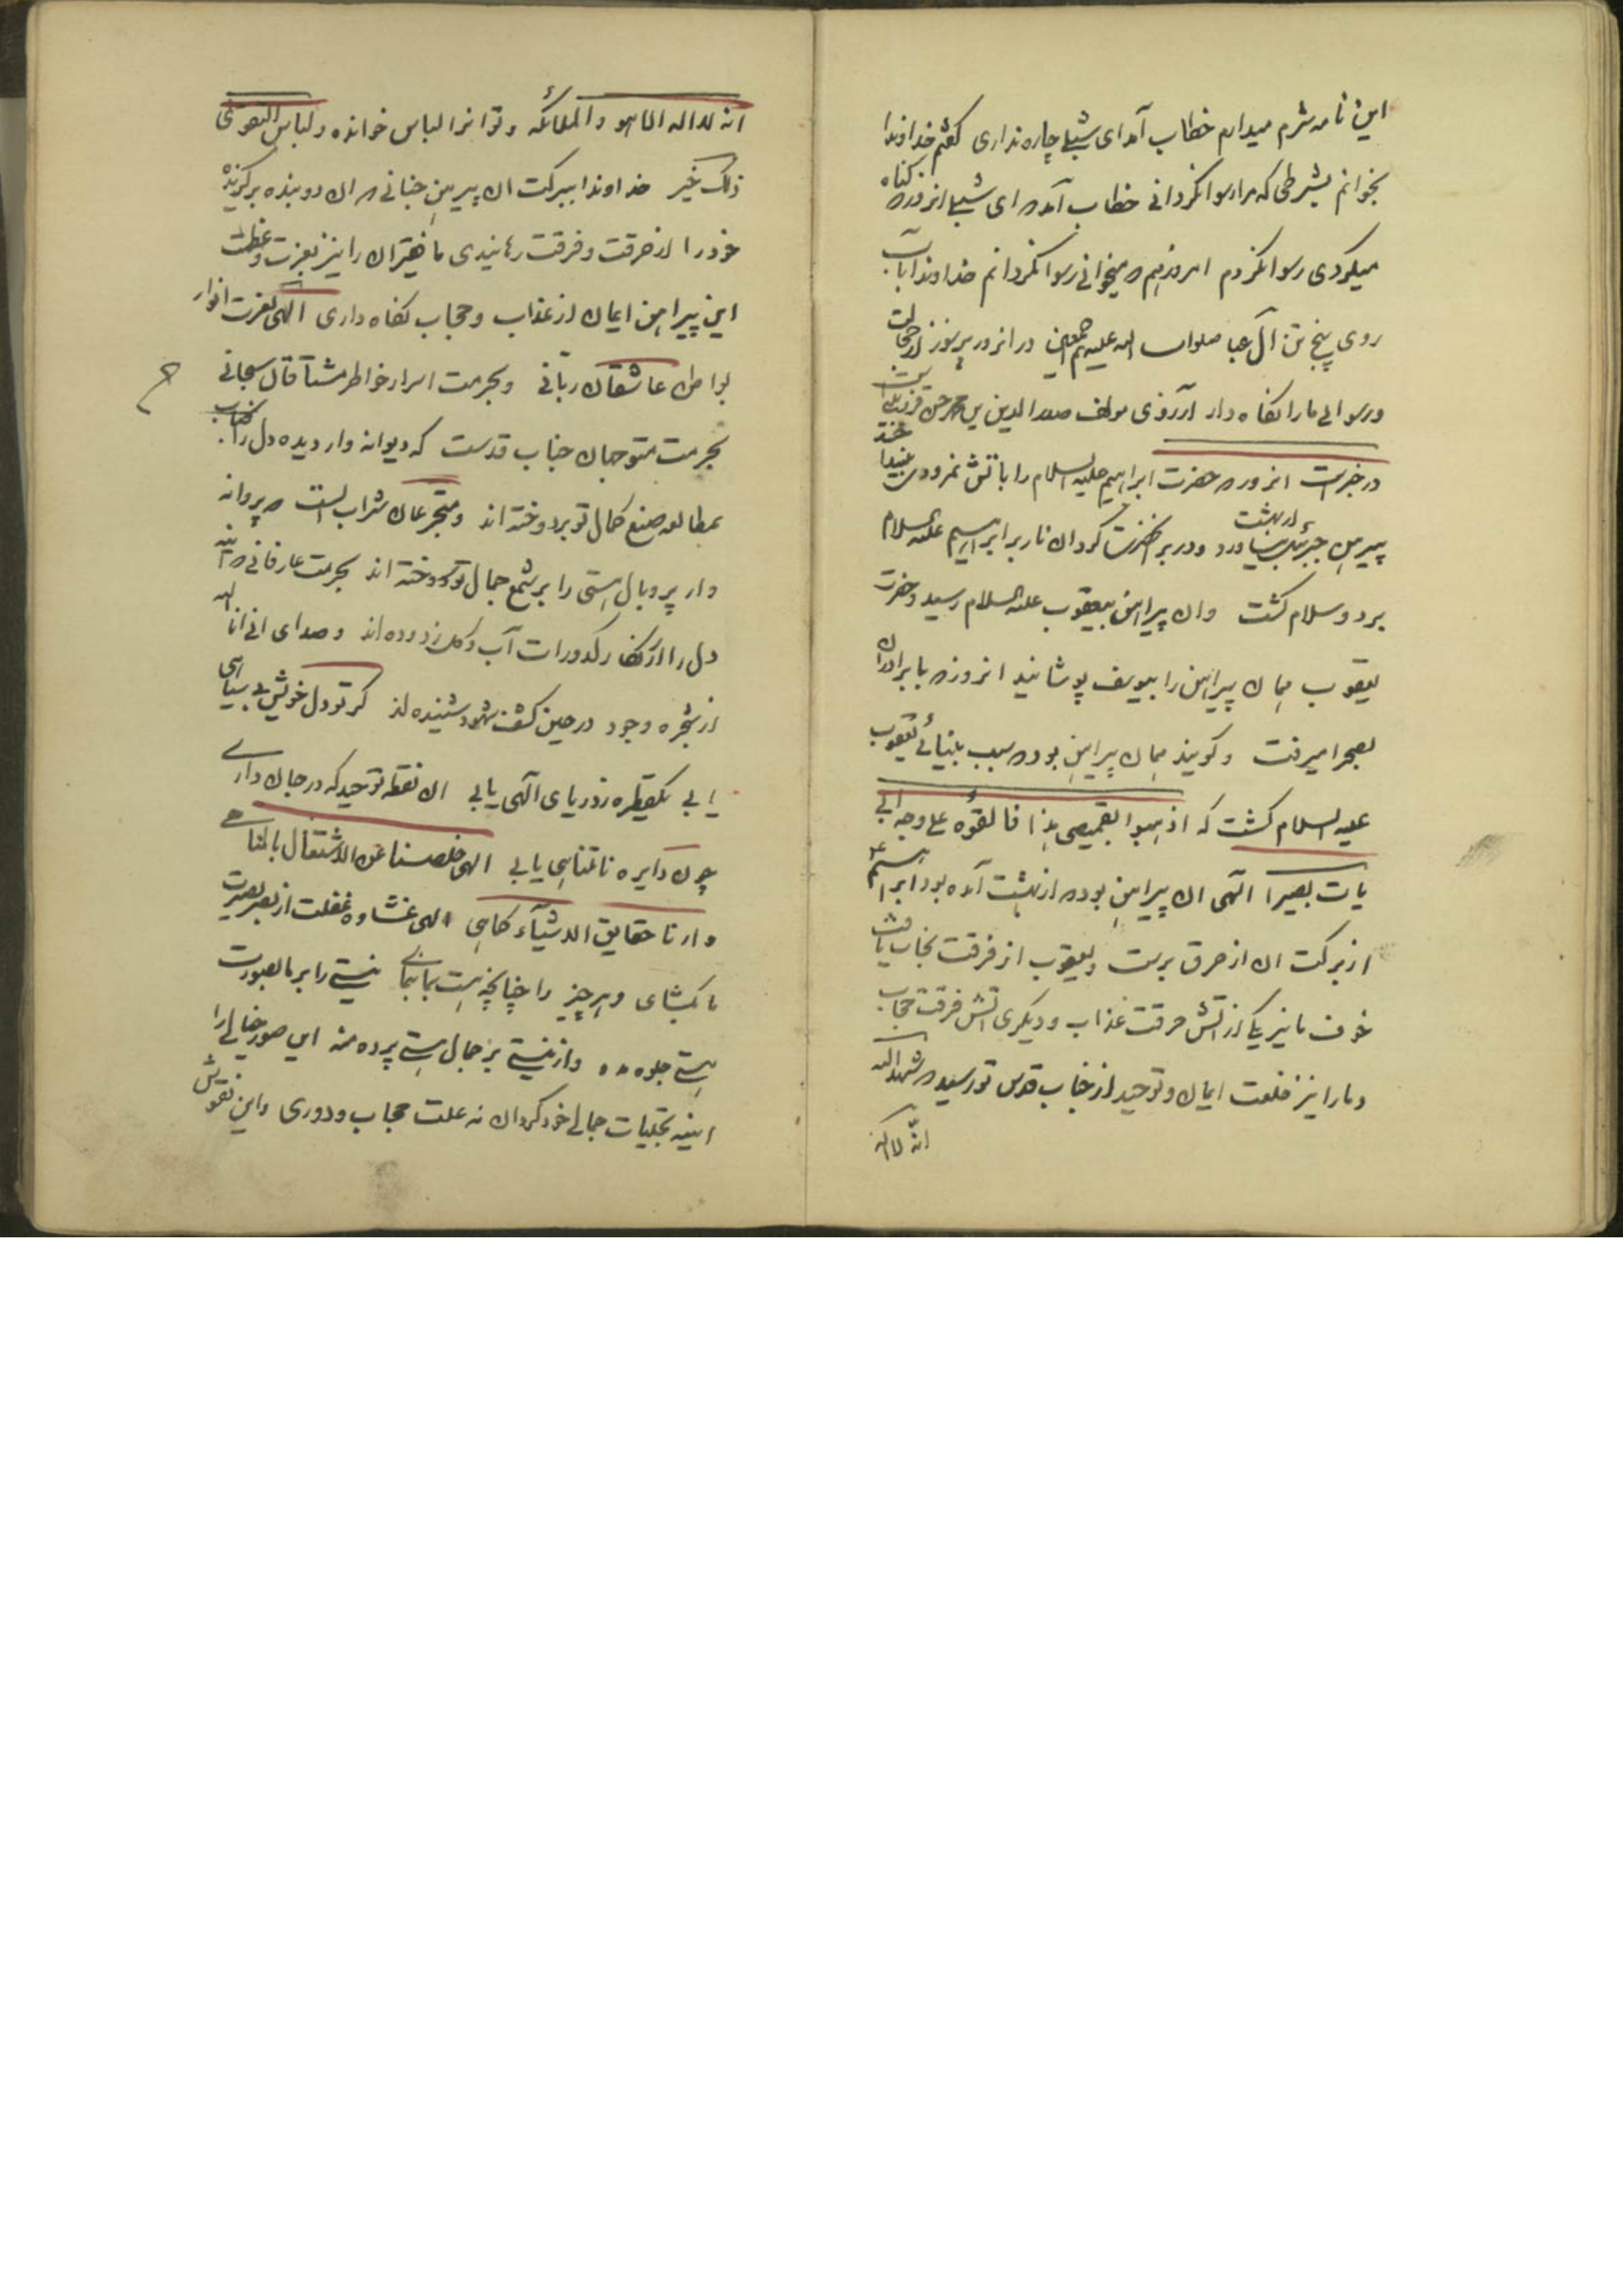 این نامه شرم میدارم خطاب آمد ای شبلی چاره نداری گفتم خداوندا
بخوانم بشرطی که مرا رسوا نکردانی خطاب آمد که ای شبلی انروز که کناه
میکردی رسوا نکردم امروز هم که میخوانی رسوا نکردانم خداوندا باب
روی پنج تن آل عبا صلوات الله علیهم اجمعین در انروز پر سوز از خجالت
ورسوائی ما را نکاه دار آرزوی مولف صدر الدین بن محمد حسن قزوینی
در خبرست انروز که حضرت ابراهیم علیه السلام را باتش نمرودی
پیرهن جبرئیل از بهشت بیاورد و در بر انحضرت کرد ان نار بر ابراهیم علیه السلام
برد و سلام کشت وان پیراهن بیعقوب علیه السلام رسید وحضرت
یعقوب همان پیراهن را بیوسف پوشانید انروز که با برادران
بصحرا میرفت و کویند همان پیراهن بود که سبب بینائی یعقوب
علیه السلام کشت که اذهبوا بقمیصی هذا فالقوه علی وجه ابی
یات بصیرا الهی ان پیراهن بود که از بهشت آمده بود ابراهیم
از برکت ان از حرق برست ویعقوب از فرقت نجات یافت
خوف ما نیز یکی از آتش حرقت عذاب و دیکری اتش فرقت حجاب
وما را نیز خلعت ایمان و توحید از جناب قدس تو رسید که شهد الله
انه لا اله
انه لا اله الا هو والملائکه وتو انرا لباس خوانده ولباس التقوی
ذلک خیر خداوندا ببرکت ان پیرهن جنانی که ان دو بنده برکزیده
خود را از حرقت وفرقت رهانیدی ما فقیران را نیز بعزت وعظمت
این پیراهن ایمان از عذاب و حجاب نکاه داری الهی بعزت انوار
بواطن عاشقان ربانی وبحرمت اسرار خواطر مشتاقان سبحانی
بحرمت متوجهان جناب قدست که دیوانه وار دیده دل را
بمطالعه صنع کمال تو بردوخته اند ومتجرعان شراب الست که پروانه
وار پر وبال هستی را بر شمع جمال تو سوخته اند بحرمت عارفانی که آینه
دل را از زنکار کدورات آب وکل زدوده اند و صدای انی انا الله
از شجره وجود در حین کشف شهود شنیده اند کر تو دل خویش بی سیاهی
یابی یکقطره ز دریای الهی یابی ان نقطه توحید که در جان داری
چون دایره نامتناهی یابی الهی خلصنا عن الاشتغال بالملاهی
وارنا حقایق الاشیاء کما هی الهی غشاوه غفلت از بصر بصیرت
ما بکشای وهر چیز را چنانچه هست بما بنمای نیستی را بر ما بصورت
هستی جلوه مده واز نیستی بر جمال هستی پرده منه این صور خیالی را
اینه تجلیات جمالی خود کردان نه علت حجاب ودوری واین نقوش